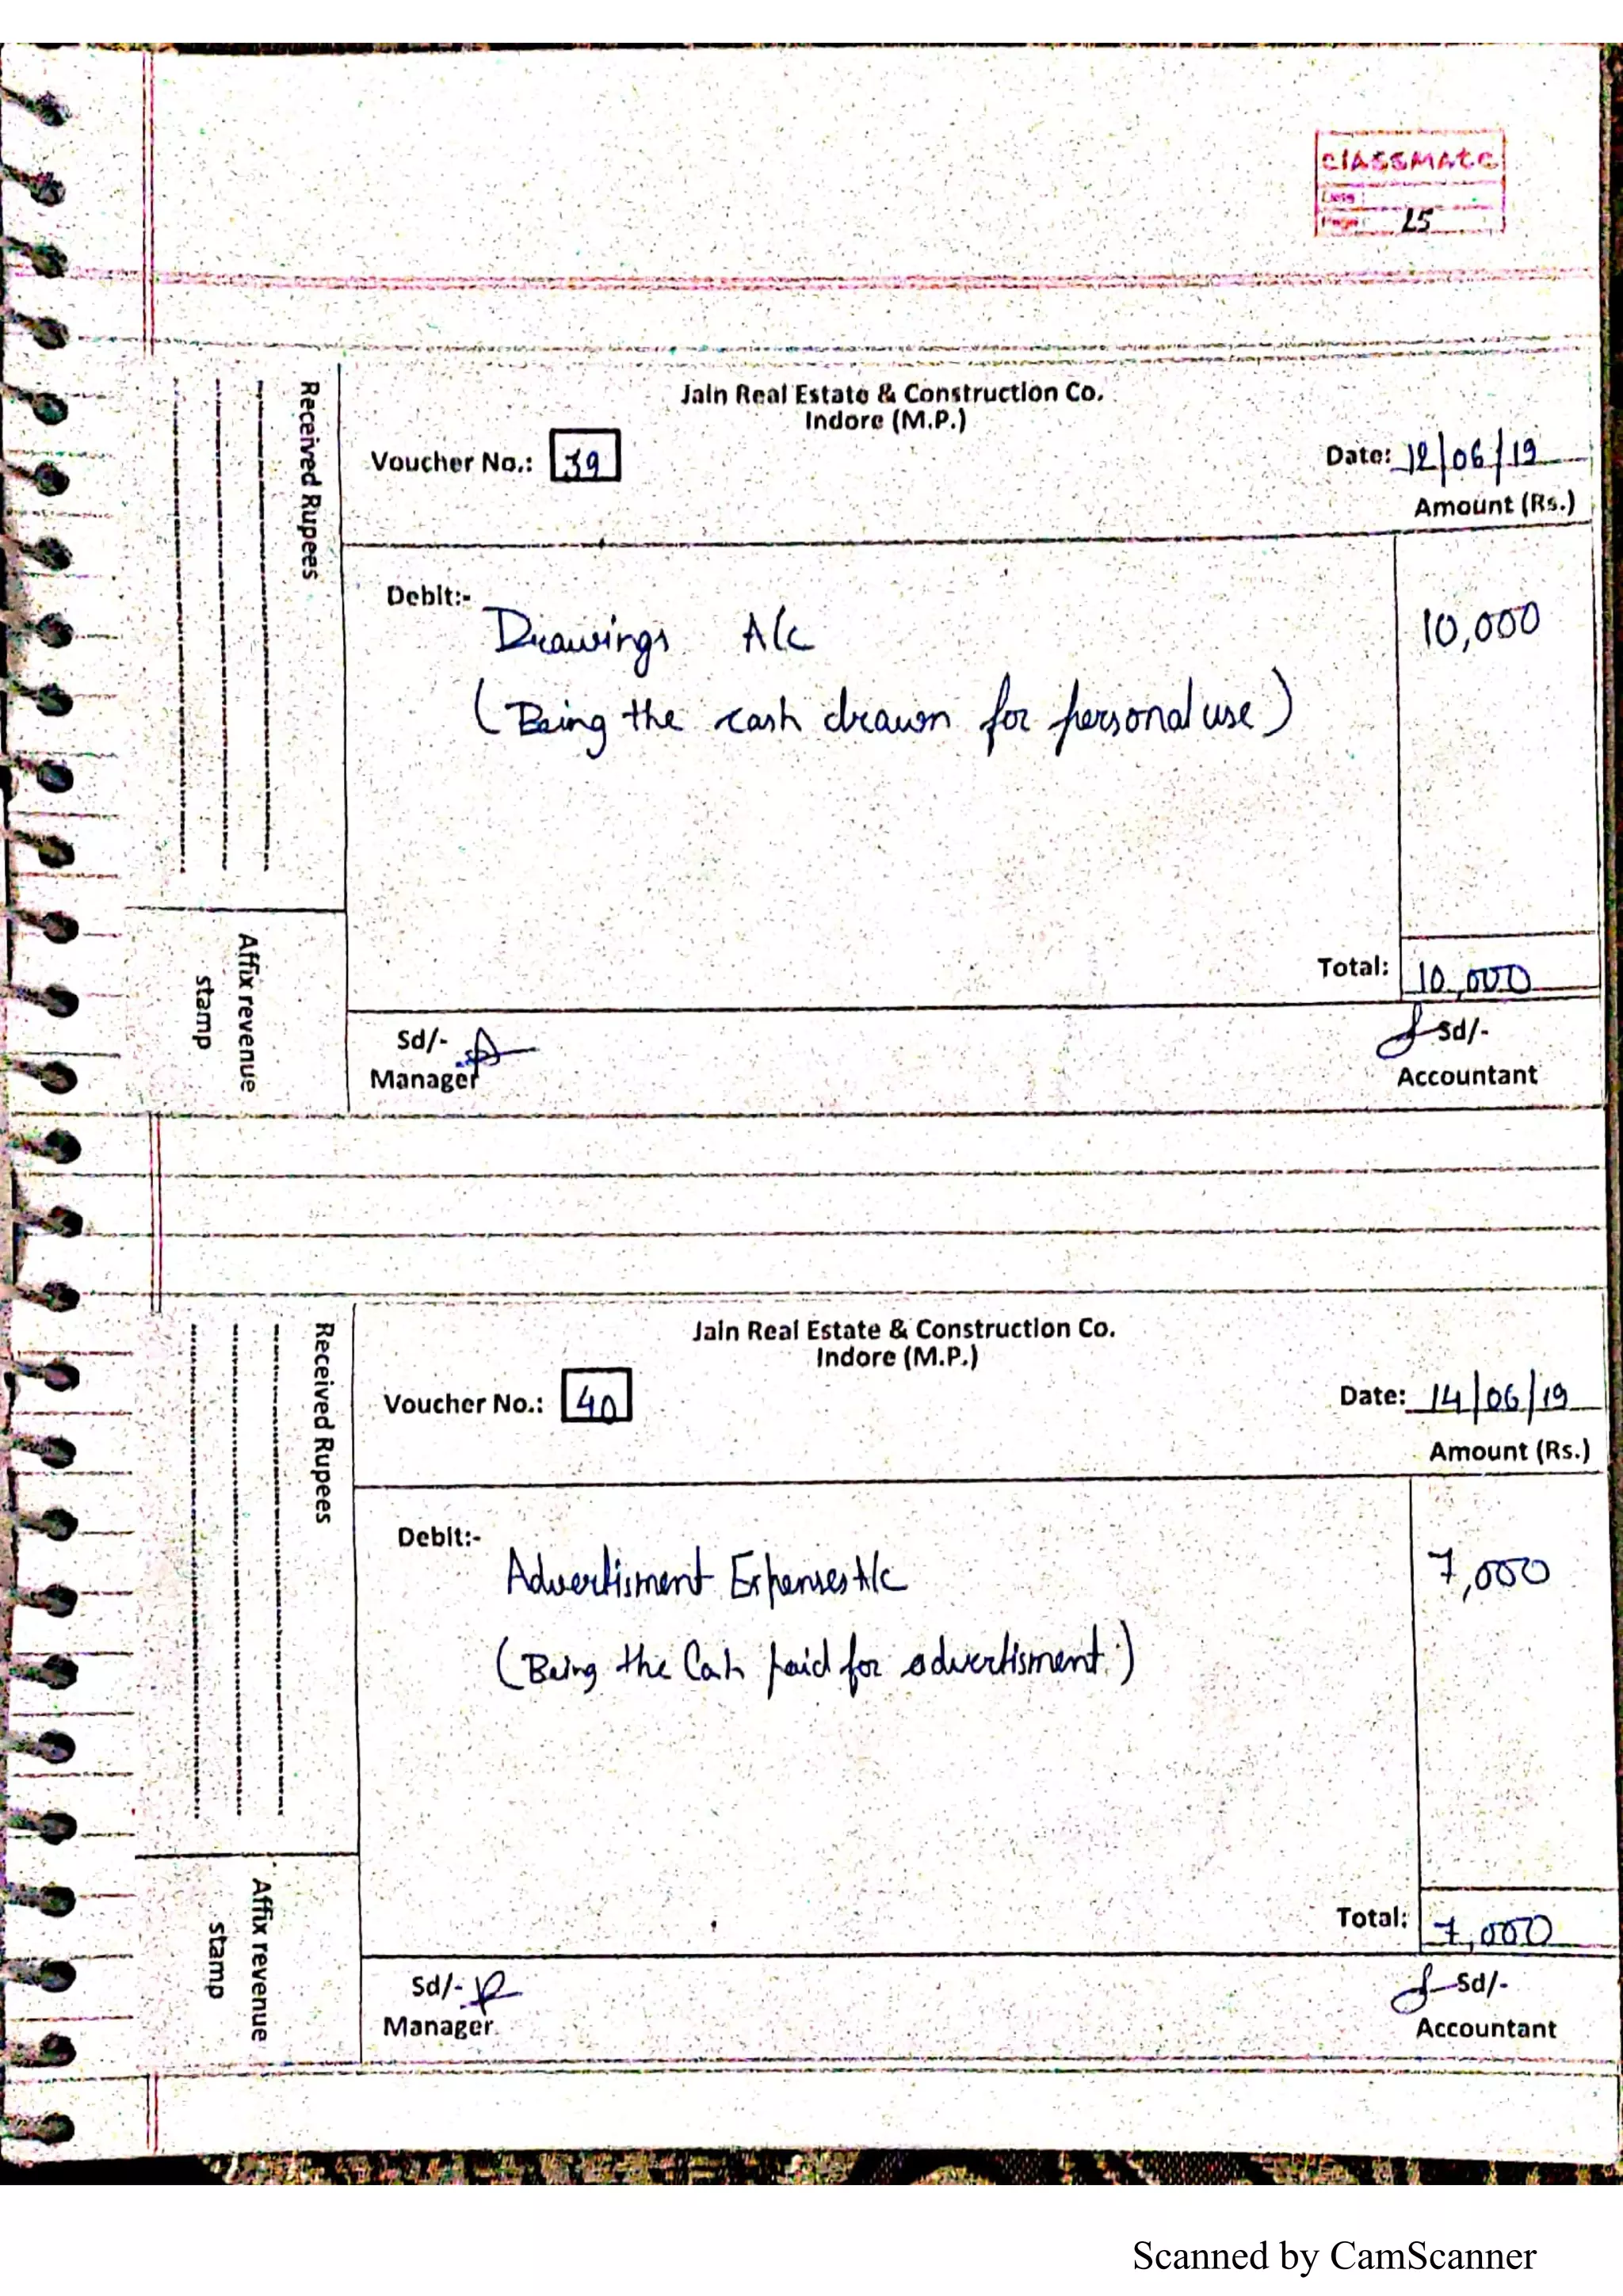 classmate
Date
Page 25
Received Rupees
Affix revenue
stamp
Jain Real Estate & Construction Co.
Indore (M.P.)
Voucher No.: 39
Date: 12/06/19
Amount (Rs.)
Debit:-
Drawings A/c 10,000
(Being the cash drawn for personal use)
Total: 10,000
Sd/- Sd/-
Manager Accountant
Received Rupees
Affix revenue
stamp
Jain Real Estate & Construction Co.
Indore (M.P.)
Voucher No.: 40
Date: 14/06/19
Amount (Rs.)
Debit:-
Advertisment Expenses A/c 7,000
(Being the Cash paid for advertisment.)
Total: 7,000
Sd/- Sd/-
Manager Accountant
Scanned by CamScanner